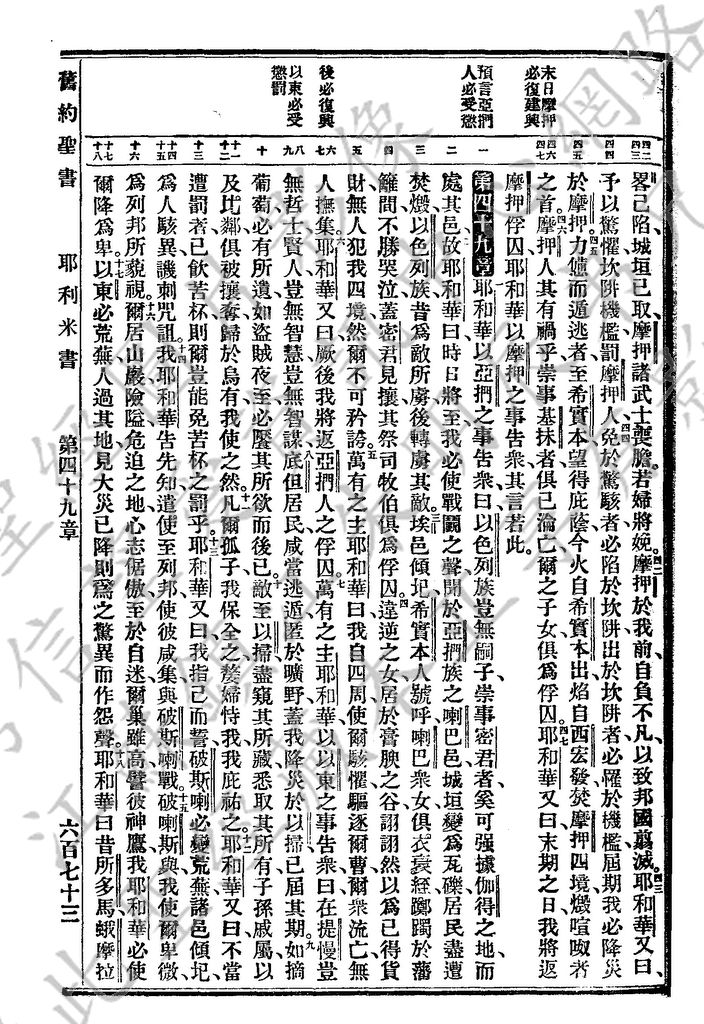 舊約聖書 耶利米書 第四十九章 六百七十三
末日摩押
必復建興
預言亞捫
人必受懲
後必復興
以東必受
懲罰
畧已陷城垣已取摩押諸武士喪膽若婦將娩摩押於我前自負不凡以致邦國翦滅耶和華又曰
予以驚懼坎阱機檻罰摩押人免於驚駭者必陷於坎阱出於坎阱者必罹於機檻屆期我必降災
於摩押力憊而遁逃者至希實本望得庇蔭今火自希實本出焰自西宏發焚摩押四境燬喧呶者
之首摩押人其有禍乎崇事基抹者俱已淪亡爾之子女俱為俘囚耶和華又曰末期之日我將返
摩押俘囚耶和華以摩押之事告衆其言若此
第四十九章 耶和華以亞捫之事告衆曰以色列族豈無嗣子崇事密君者奚可强據伽得之地而
處其邑故耶和華曰時日將至我必使戰鬭之聲聞於亞捫族之喇巴邑城垣變為瓦礫居民盡遭
焚燬以色列族昔為敵所虜後轉虜其敵埃邑傾圮希實本人號呼喇巴衆女俱衣衰絰躑躅於藩
籬間不勝哭泣蓋密君見攘其祭司牧伯俱為俘囚違逆之女居於膏腴之谷詡詡然以為已得貨
財無人犯我四境然爾不可矜誇萬有之主耶和華曰我自四周使爾駭懼驅逐爾曹爾衆流亡無
人撫集耶和華又曰厥後我將返亞捫人之俘囚萬有之主耶和華以以東之事告衆曰在提慢豈
無哲士賢人豈無智慧豈無智謀底但居民咸當逃遁匿於曠野蓋我降災於以掃已屆其期如摘
葡萄必有所遺如盜賊夜至必饜其所欲而後已敵至以掃盡窺其所藏悉取其所有子孫戚屬以
及比鄰俱被攘奪歸於烏有我使之然凡爾孤子我保全之嫠婦恃我我庇祐之耶和華又曰不當
遭罰者已飲苦杯則爾豈能免苦杯之罰乎耶和華又曰我指己而誓破斯喇必變荒蕪諸邑傾圮
為人駭異譏刺咒詛我耶和華告先知遣使至列邦使彼咸集與破斯喇戰破喇斯與我使爾卑微
為列邦所藐視爾居山巖險隘危迫之地心志倨傲至於自迷爾巢雖高譬彼神鷹我耶和華必使
爾降為卑以東必荒蕪人過其地見大災已降則為之驚異而作怨聲耶和華曰昔所多馬蛾摩拉